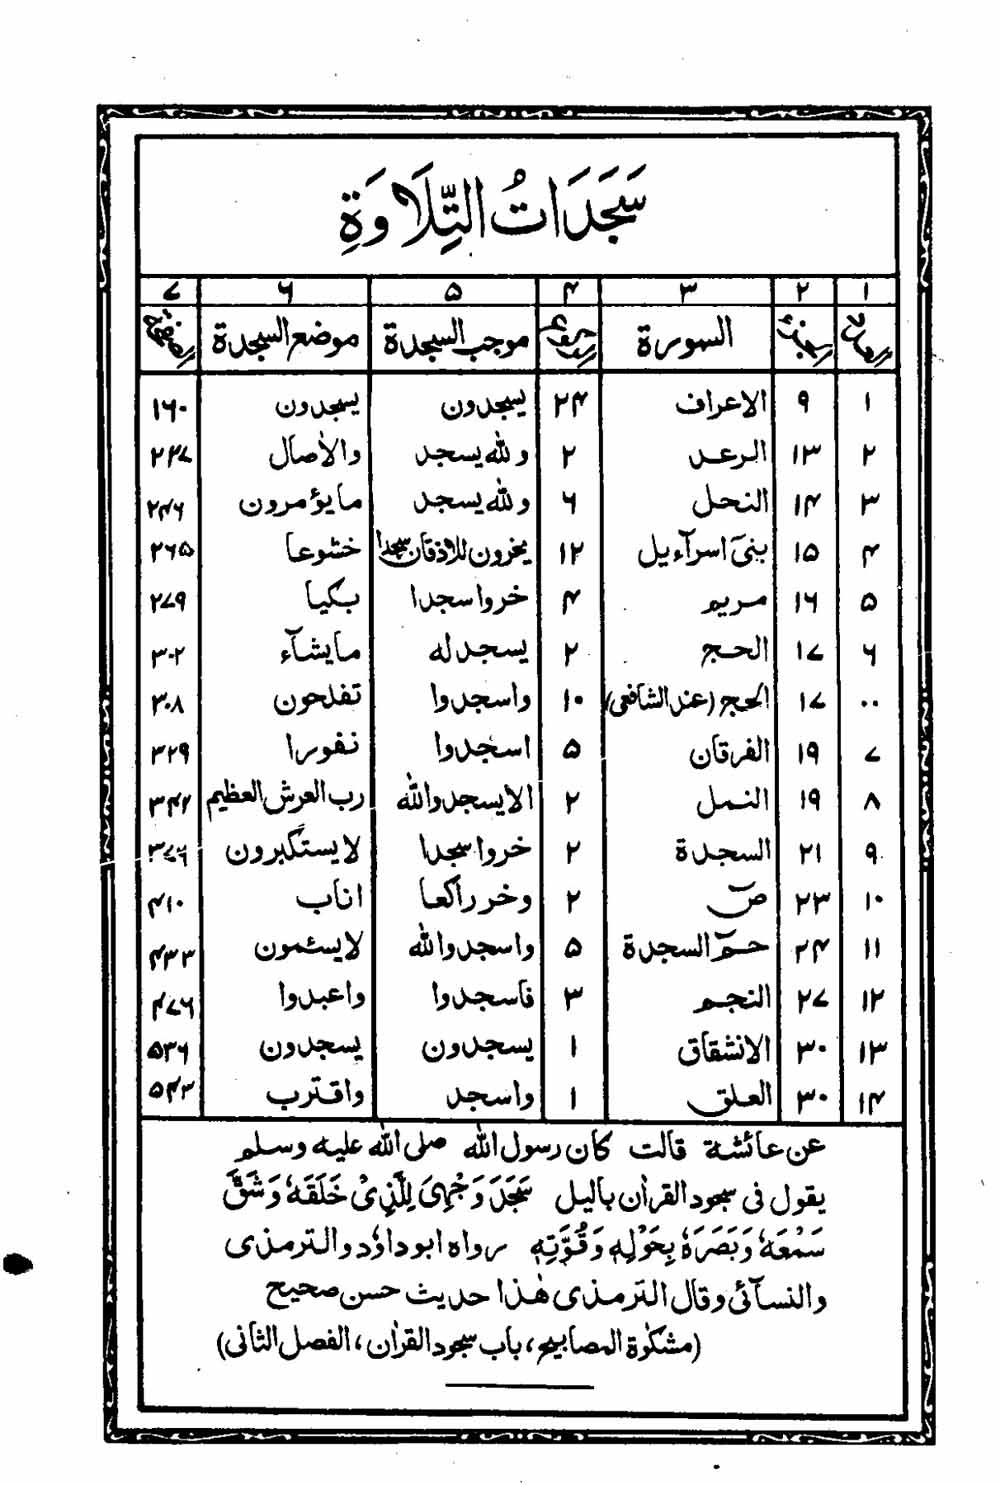 سَجَدَاتُ التِّلَاوَةِ
۱ ۲ ۳ ۴ ۵ ۶ ۷
العدد الجزء السورة الركوع موجب السجدة موضع السجدة الصفحة
۱ ۹ الاعراف ۲۴ يسجدون يسجدون ۱۶۰
۲ ۱۳ الرعد ۲ ولله يسجد والاٰصال ۲۲۷
۳ ۱۴ النحل ۶ ولله يسجد مايؤمرون ۲۴۶
۴ ۱۵ بنیٓ اسرآءيل ۱۲ يخرون للاذقان سجدا خشوعا ۲۶۵
۵ ۱۶ مريم ۴ خرواسجدا بكيا ۲۷۹
۶ ۱۷ الحج ۲ يسجدله مايشآء ۳۰۲
۰۰ ۱۷ الحج (عند الشافعی) ۱۰ واسجدوا تفلحون ۳۰۸
۷ ۱۹ الفرقان ۵ اسجدوا نفورا ۳۲۹
۸ ۱۹ النمل ۲ الايسجدوالله رب العرش العظيم ۳۴۲
۹ ۲۱ السجدة ۲ خرواسجدا لايستكبرون ۳۷۶
۱۰ ۲۳ صٓ ۲ وخرراكعا اناب ۴۱۰
۱۱ ۲۴ حمٓ السجدة ۵ واسجدوالله لايسئمون ۴۳۳
۱۲ ۲۷ النجم ۳ فاسجدوا واعبدوا ۴۷۶
۱۳ ۳۰ الانشقاق ۱ يسجدون يسجدون ۵۳۶
۱۴ ۳۰ العلق ۱ واسجد واقترب ۵۴۳
عن عائشة قالت كان رسول الله صلی الله عليه وسلم
يقول فی سجود القراٰن بالیل سَجَدَ وَجْهِیَ لِلَّذِیْ خَلَقَهٗ وَشَقَّ
سَمْعَهٗ وَبَصَرَهٗ بِحَوْلِهٖ وَقُوَّتِهٖ رواه ابوداوٗد والترمذی
والنسآئی وقال الترمذی هٰذا حديث حسن صحيح
(مشكوٰة المصابيح، باب سجود القراٰن، الفصل الثانی)